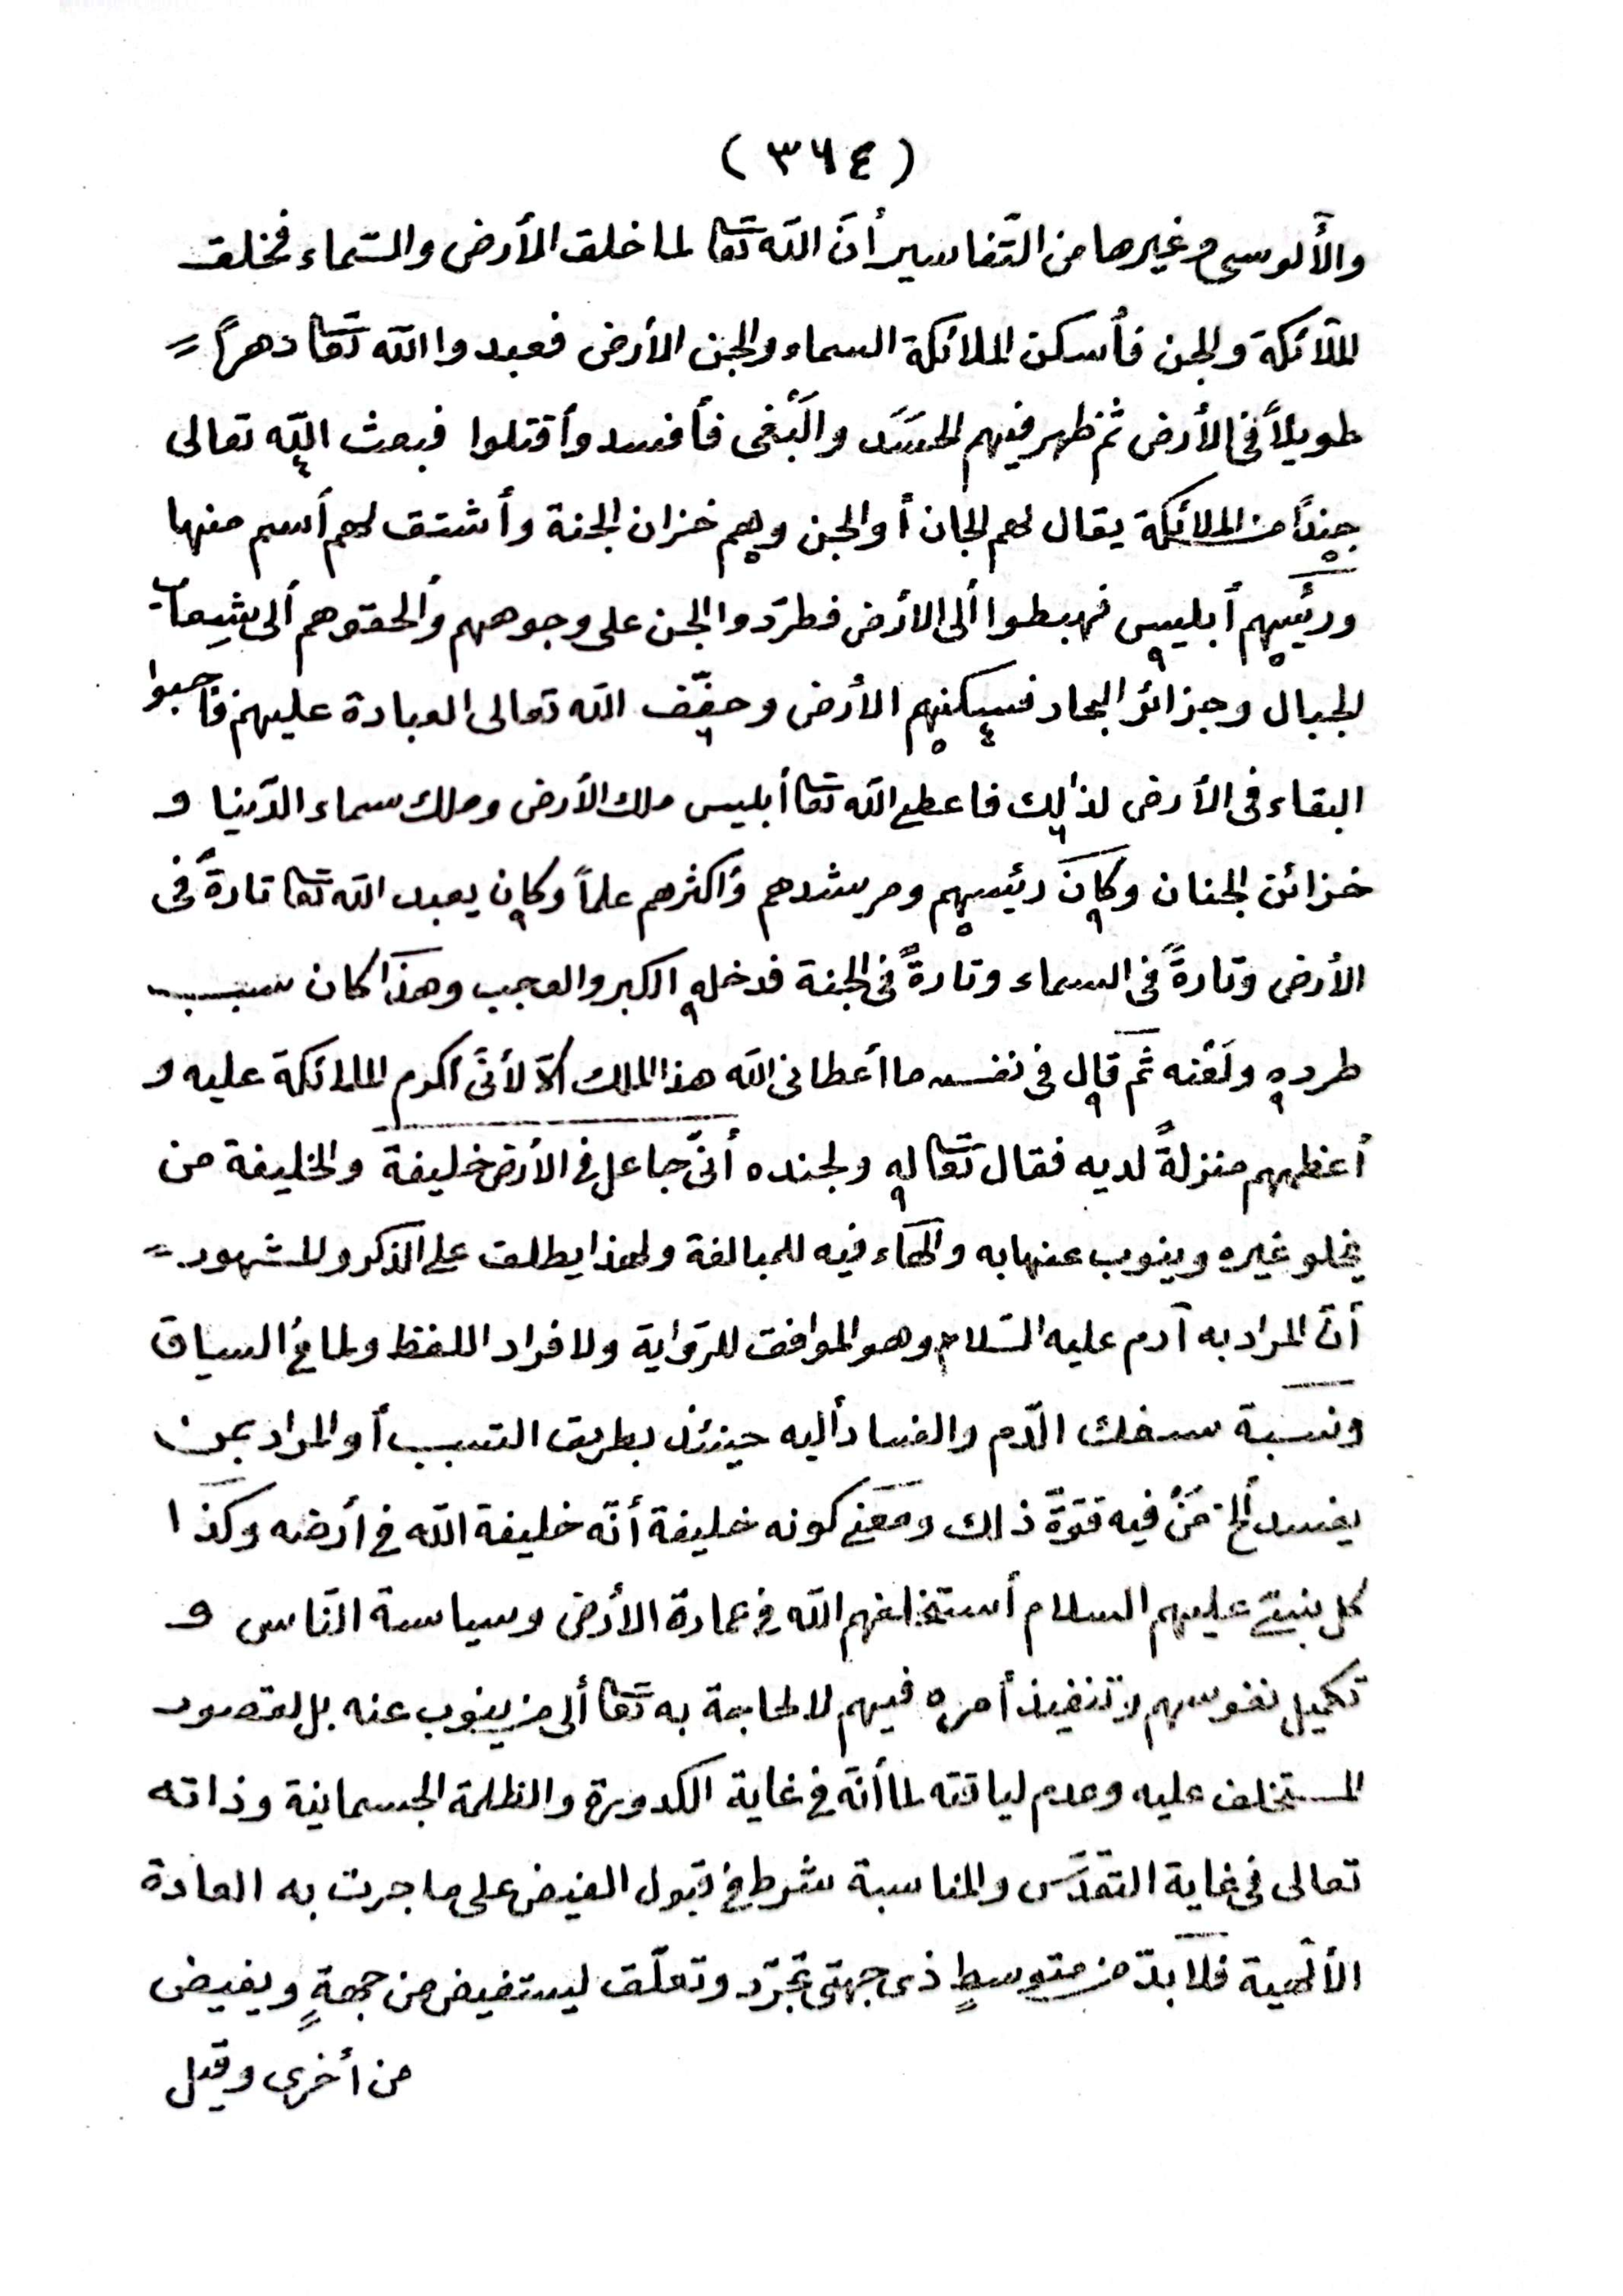 (٣٦٤)
والألوسي وغيرها من التّفاسير أنّ اللّه تعا لما خلق الأرض والسّماء فخلق
الملآئكة والجن فأسكن الملائكة السماء والجن الأرض فعبدوا اللّه تعا دهراً =
طويلاً في الأرض ثم ظهر فيهم الحسَد والبَغى فأفسد وأقتلوا فبعث اللّه تعالى
جنداً من الملائكة يقال لهم الجان أو الجن وهم خزان الجنة وأشتق لهم أسم منها
ورئيسهم أبليس فهبطوا ألى الأرض فطرّدوا الجن على وجوههم وألحقوهم ألى شِعاب
الجبال وجزائر البحار فسكنهم الأرض وخفّف اللّه تعالى العبادة عليهم فأحبوا
البقاء في الأرض لذلك فاعطى اللّه تعا أبليس ملك الأرض وملك سماء الدّنيا و
خزائن الجنان وكانَ رئيسهم ومرشدهم وأكثرهم علماً وكان يعبد اللّه تعا تارةً فى
الأرض وتارةً فى السماء وتارةً فى الجنة فدخله الكبر والعجب وهذا كان سبب
طرده ولَعْنه ثم قال فى نفسه ما أعطانى اللّه هذا الملك ألاّ لأنّى أكرم الملائكة عليه و
أعظمهم منزلةً لديه فقال تعا له ولجنده أنّى جاعل في الأرض خليفة والخليفة من
يخلو غيره وينوب عنهابه والهاء فيه للمبالغة ولهذا يطلق على الذكر والمشهور =
أنّ المراد به آدم عليه السّلام وهو الموافق للرّواية ولافراد اللفظ ولما في السياق
ونسبة سفك الدّم والفساد أليه حينئذ بطريق التسبب أو المراد بمن
يفسد ألخ مَنْ فيه قوّة ذلك ومعنى كونه خليفة أنّه خليفة اللّه في أرضه وكذا
كل نبىّ عليهم السلام أستخلفهم اللّه في عمارة الأرض وسياسة النّاس و
تكميل نفوسهم وتنفيذ أمره فيهم لا لحاجة به تعا ألى من ينوب عنه بل لقصور
المستخلف عليه وعدم لياقته لما أنّه في غاية الكدورة والظلمة الجسمانية وذاته
تعالى في غاية التقدّس والمناسبة شرط في قبول الفيض على ما جرت به العادة
الألهية فلابدّ من متوسطٍ ذى جهتى تجرّد وتعلّق ليستفيض من جهةٍ ويفيض
من أخرى وقيل